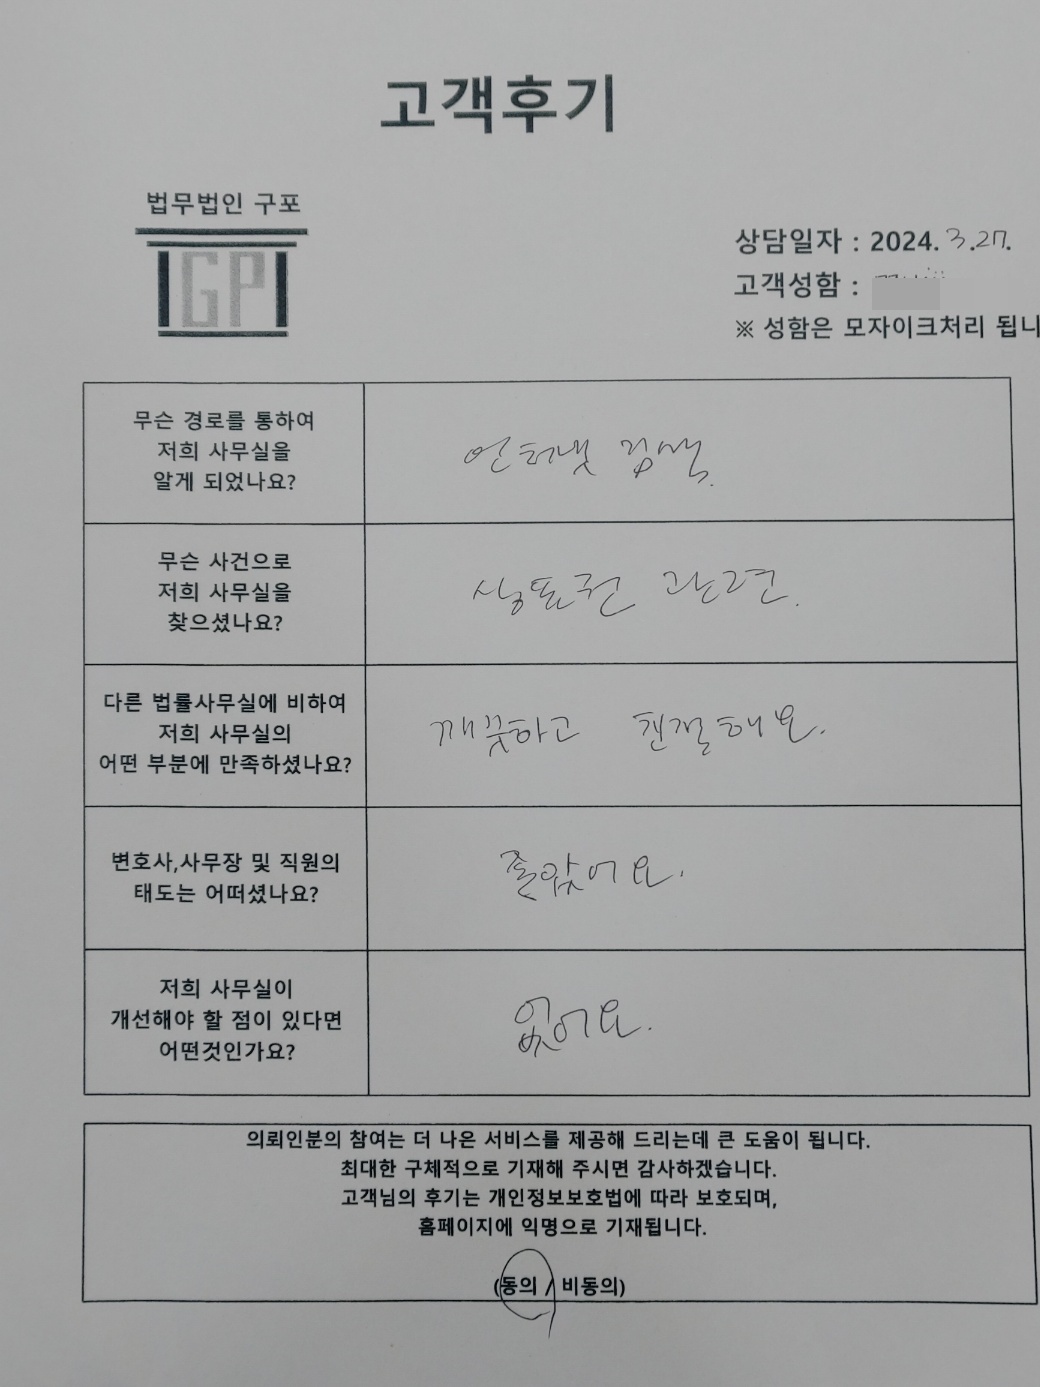 고객후기
법무법인 구포
GP
상담일자 : 2024. 3.27.
고객성함 :
※ 성함은 모자이크처리 됩니
무슨 경로를 통하여
저희 사무실을
알게 되었나요?
인터넷 검색.
무슨 사건으로
저희 사무실을
찾으셨나요?
상표권 관련.
다른 법률사무실에 비하여
저희 사무실의
어떤 부분에 만족하셨나요?
깨끗하고 친절해요.
변호사,사무장 및 직원의
태도는 어떠셨나요?
좋았어요.
저희 사무실이
개선해야 할 점이 있다면
어떤것인가요?
없어요.
의뢰인분의 참여는 더 나은 서비스를 제공해 드리는데 큰 도움이 됩니다.
최대한 구체적으로 기재해 주시면 감사하겠습니다.
고객님의 후기는 개인정보보호법에 따라 보호되며,
홈페이지에 익명으로 기재됩니다.
(동의 / 비동의)